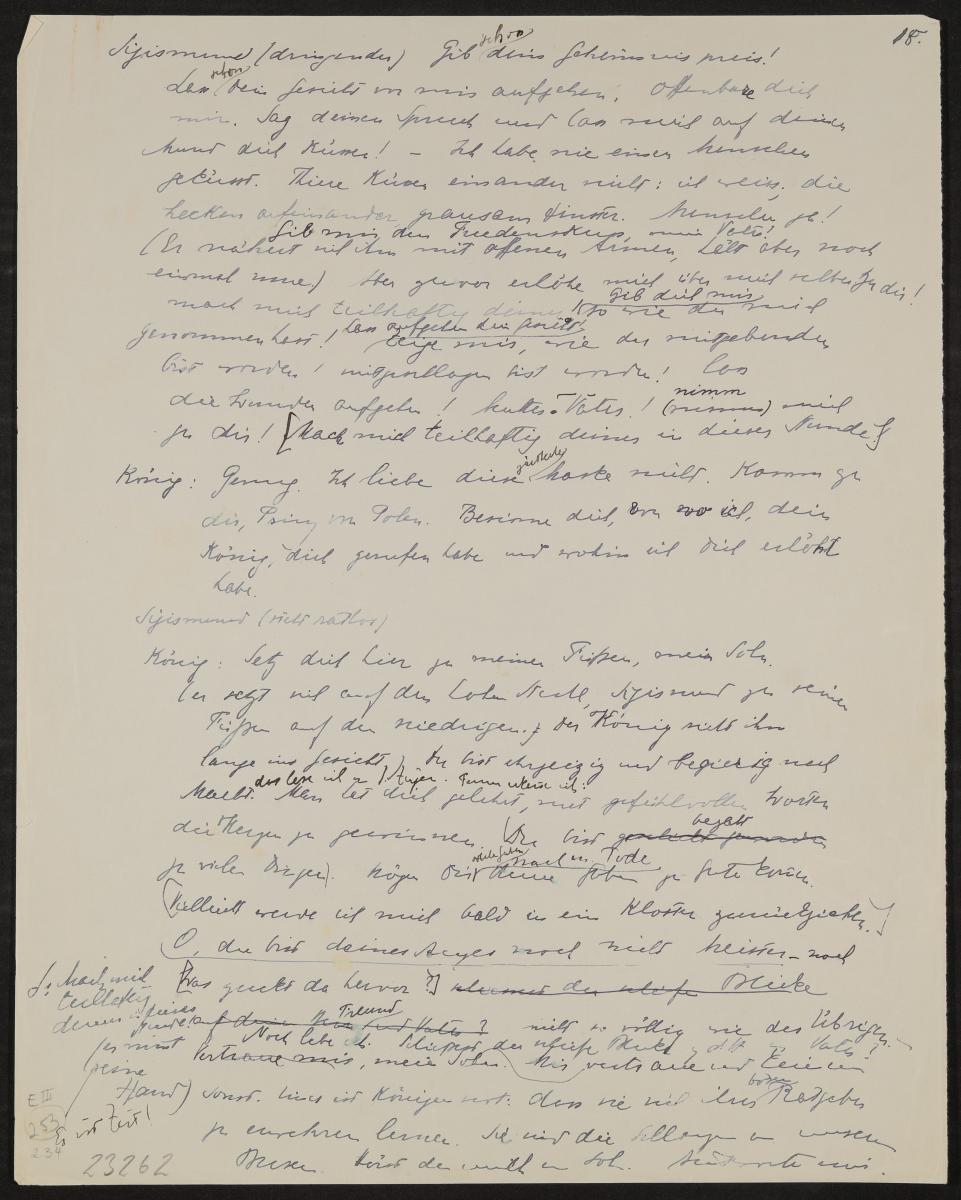 18.
schon
Sigismund (dringender) Gib dein Geheimnis preis!
schon
Lass dein Gesicht vor mir aufgehen. Offenbare dich
mir. Sag deinen Spruch und lass mich auf deinen
Mund dich küssen! – Ich habe nie einen Menschen
geküsst. Thiere küssen einander nicht: ich weiss, die
hecken aufeinander, grausam finster. Menschen ja!
Gib mir den Friedenskuss, mein Vater!
(Er nähert sich ihm mit offenen Armen, hält aber noch
einmal inne) Aber zuvor erhöhe mich über mich selber zu dir!
Gib dich mir
mach mich teilhaftig deiner so wie du mich
Lass aufgehen dein Gesicht!
genommen hast! Zeige mir, wie du mitgebunden
bist worden! mitgeschlagen bist worden! Lass
nimm
die Wunder aufgehen! Mutter-Vater! (nimm) mich
zu dir! [Mach mich teilhaftig deiner in dieser Stunde!]
König: Genug. Ich liebe diese Maske nicht. Komm zu
dir, Prinz von Polen. Besinne dich, von wo ich, dein
König, dich gerufen habe und wohin ich dich erhöht
habe.
Sigismund (steht ratlos)
König: Setz dich hier zu meinen Füssen, mein Sohn.
(er setzt sich auf den hohen Stuhl, Sigismund zu seinen
Füßen auf den niedrigen.) Der König sieht ihn
lange ins Gesicht) Du bist ehrgeizig und begierig nach
das lese ich in
Macht. Man hat dich gelehrt, mit gefühlvollen Worten
die Herzen zu gewinnen. (Du bist
begabt
zu vielen Dingen). Mögen
nach m Tode
Gaben zu gute kommen.
(Vielleicht werde ich mich bald in ein Kloster zurückziehen.)
O, du bist deines Auges noch nicht Meister – noch
[Was guckt da hervor?] Blicke
S: Mach mich
teilhaftig
deiner in dieser
Stunde!
Freund und Vater?
nicht so völlig wie des Übrigen.
Noch lebe ich.
(er nimmt
seine
Hand)
Vertraue mir, mein Sohn. Mir vertraue und keinem
sonst. Eines ist Königen not: dass sie sich ihrer bösen Ratgeber
Es ist Zeit!
zu erwehren lernen. Sie sind die Schlangen an unserem
Busen. Hörst du mich m Sohn. Antworte mir.
E III
253
234
23262